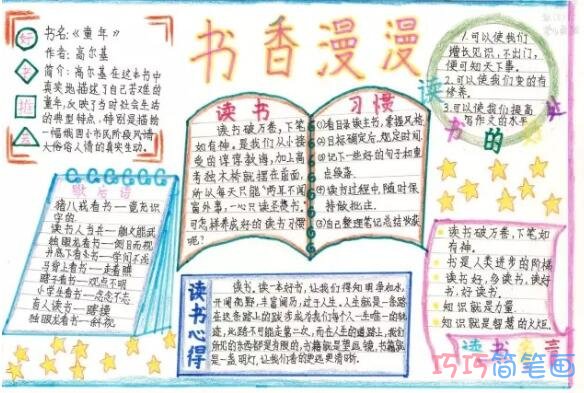 书香漫漫
好
书
推
荐
书名:《童年》
作者:高尔基
简介:高尔基在这本书中
真实地描述了自己苦难的
童年,反映了当时社会生活
的典型特点,特别是描绘
一幅俄国小市民阶级风情
大俗俗人情的真实生动。
读书
读书破万卷,下笔
如有神。是我们从小接
受的谆谆教诲,加上高
考独木桥就摆在面前,
所以每天只能“两耳不闻
窗外事,一心只读圣贤书。
可怎样养成好的读书习惯
呢?
习惯
①看目录读主书,掌握风格
②目标确定后,规定时间.
③记下一些好的句子和重
点段落.
④读书过程中,随时保
持做批注.
⑤自己整理笔记总结收获
1.可以使我们
增长见识,不出门,
便可知天下事。
2.可以使我们变的有
修养。
3.可以使我们提高
写作文的水平
读书的好处
歇后语
猪八戒看书—竟充识
字的.
读书人当兵—能文能武
独眼龙看书—侧目而视
井底下看书—学问不浅
马背上看书—走着瞧
瞎子看书—观点不明
小学生看书—念念不忘
盲人读书—瞎摸
独眼龙看书—斜视
读书心得
读书,读一本好书,让我们得知明净如水,
开阔视野,丰富阅历,益于人生。人生就是一条路
在这条路上的跋步成为我们每个人一生唯一的轨
迹,此路不可能走第二次,而在人生的道路上,我们
所见的东西都是有限的,书籍就是望远镜,书籍就
是一盏明灯,让我们看的更远更清晰。
读书破万卷,下笔如
有神。
书是人类进步的阶梯
读书好,多读书,读好
书,好读书.
知识就是力量.
知识就是智慧的火炬.
读书名言
巧巧简笔画